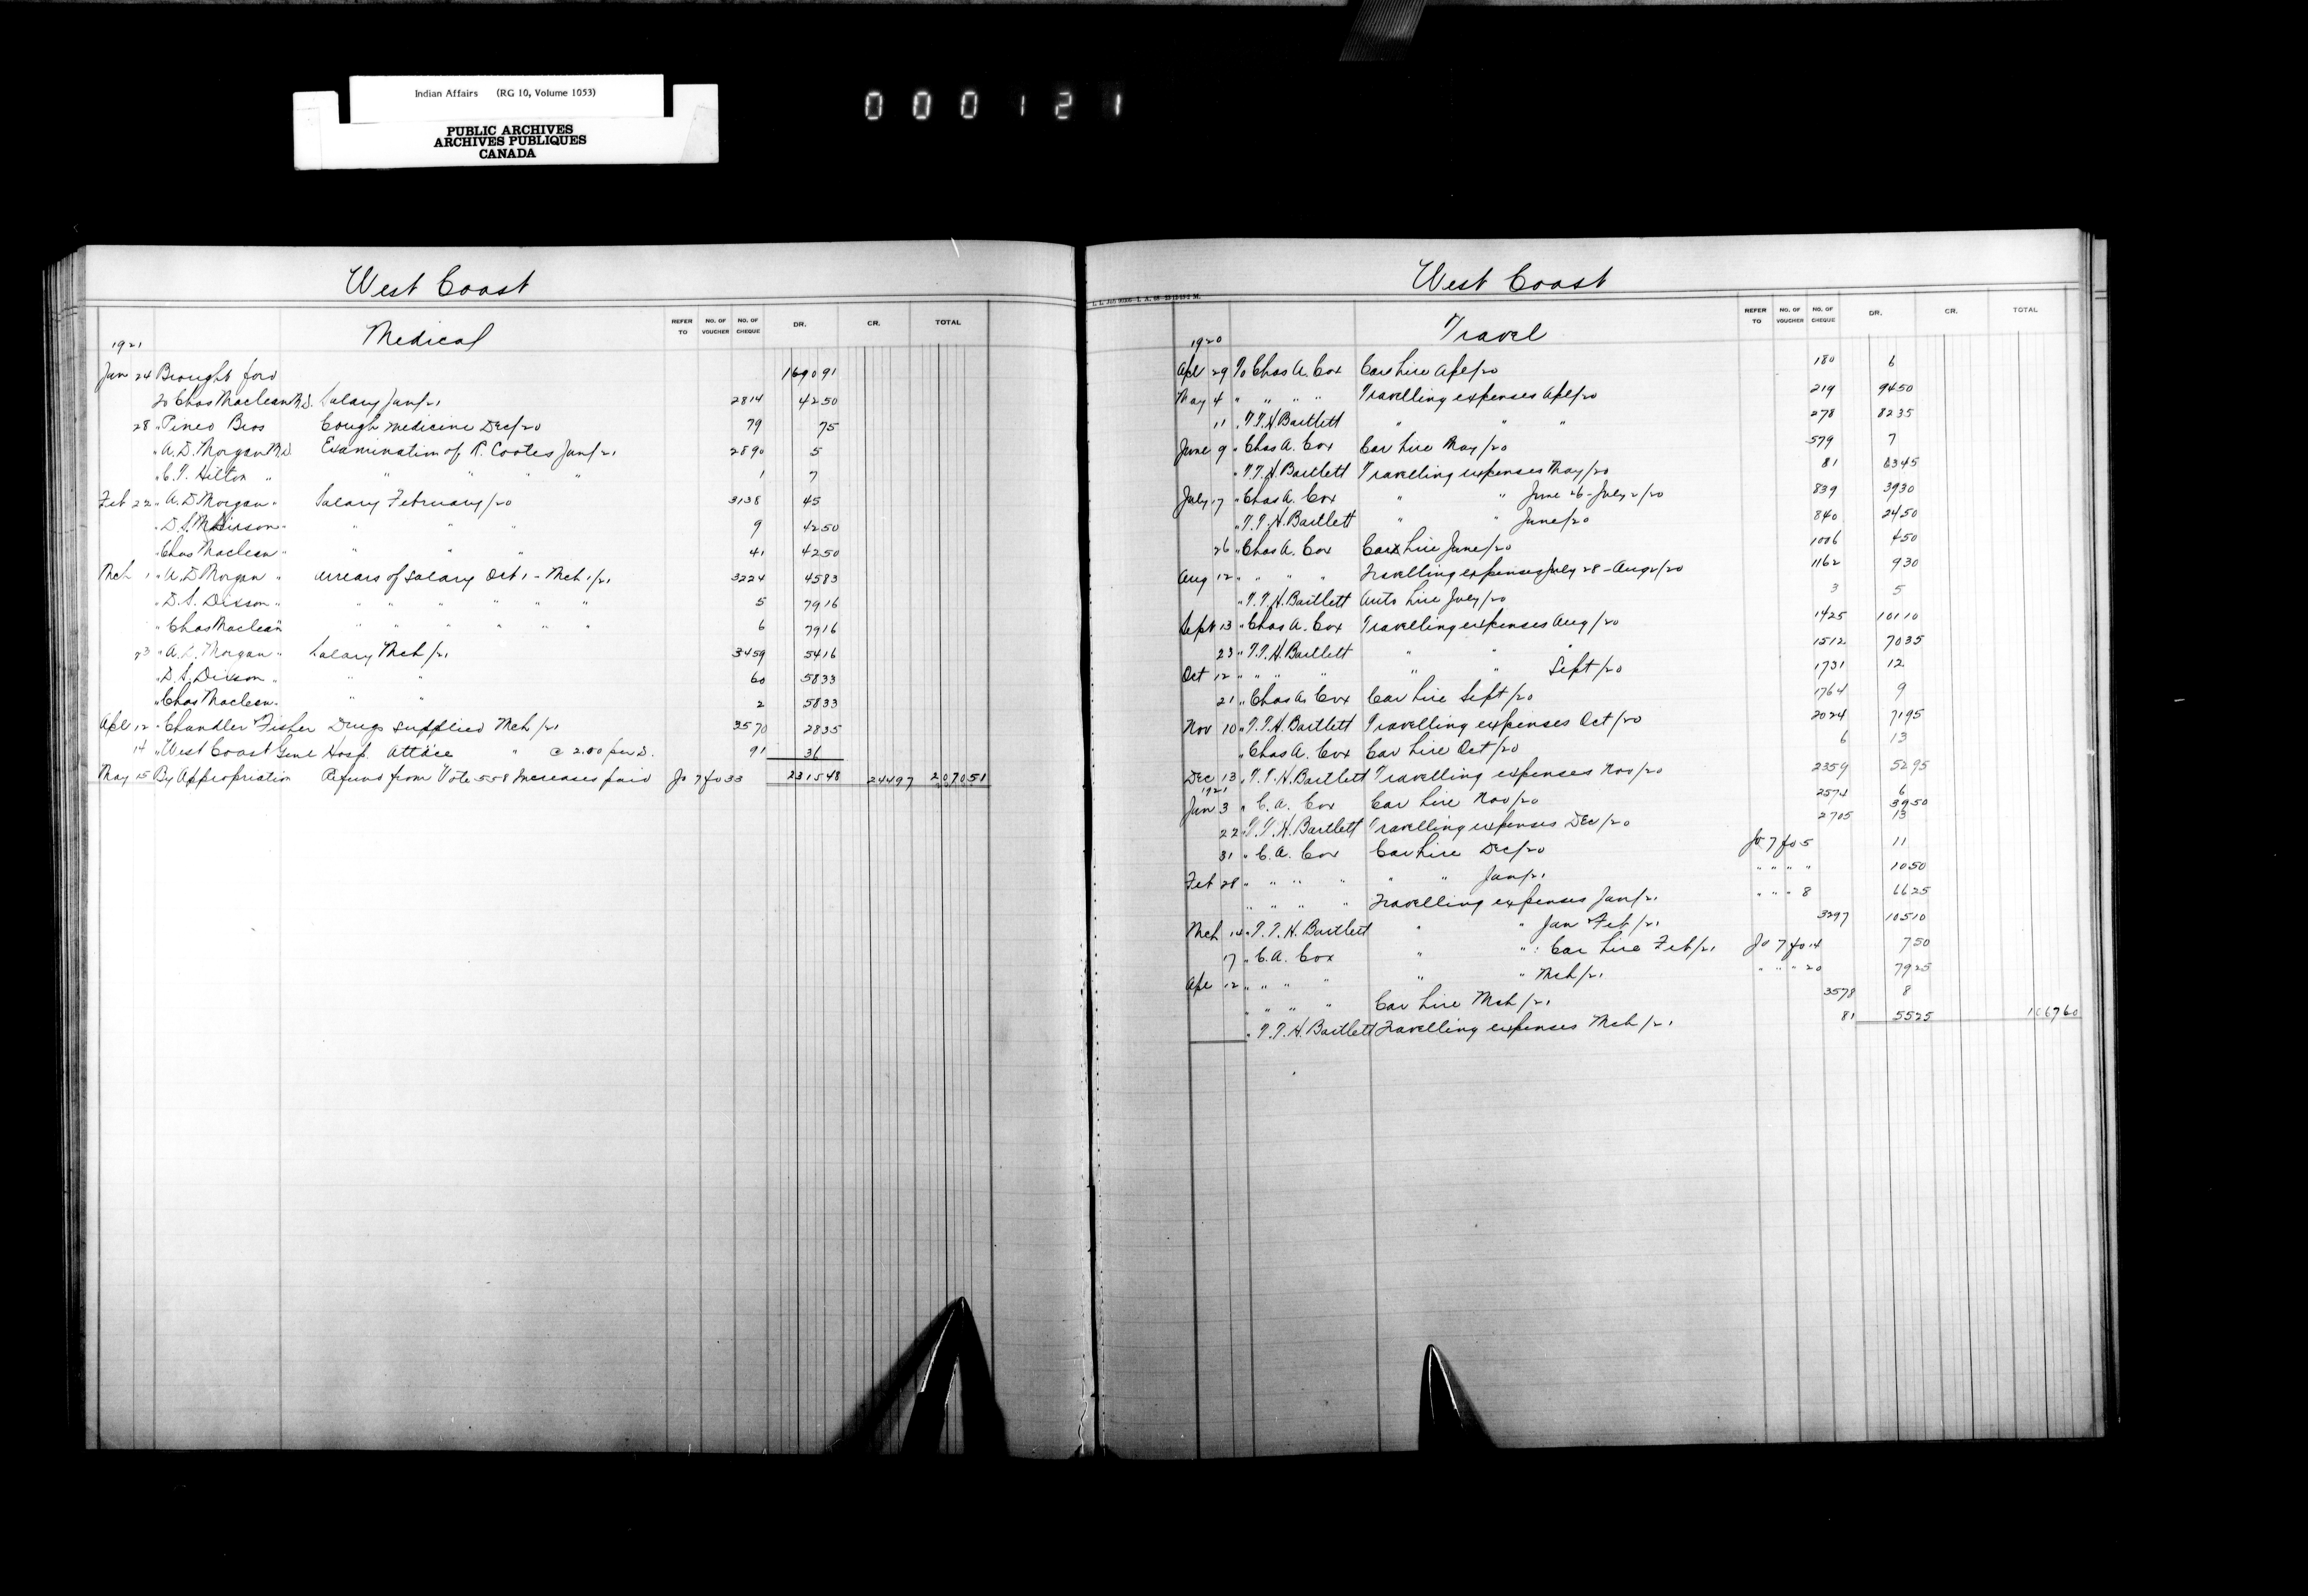 Indian Affairs (RG 10, Volume 1053)
PUBLIC ARCHIVES
ARCHIVES PUBLIQUES
CANADA
000121
West Coast
1921 Medical REFER TO NO. OF VOUCHER NO. OF CHEQUE DR. CR. TOTAL
Jan 24 Brought ford 1690 91
To Chas Maclean M.D. Salary Jan/21 2814 42 50
28 " Pineo Bros Cough medicine Dec/20 79 75
" A.D. Morgan M.D. Examination of R. Cootes Jan/21 2890 5
" C.T. Hilton " " " " " 1 7
Feb 22 " A.D. Morgan " Salary February/20 3138 45
" D.S. " " " " 9 42 50
" Chas Maclean " " " " 41 42 50
Mch 1 " A.D. Morgan " arrears of salary Oct 1 - Mch 1/21 3224 45 83
" D.S. Dixson " " " " " " " 5 79 16
" Chas Maclean " " " " " " " 6 79 16
23 " A.D. Morgan " Salary Mch/21 3459 54 16
" D.S. Dixson " " " 60 58 33
" Chas Maclean " " " 2 58 33
Apl 12 " Chandler & Fisher Drugs supplied Mch/21 3570 28 35
14 " West Coast Genl Hosp. attdce " @ 2.00 per D. 91 36
May 15 By Appropriation Refund from Vote 558 Increases paid Jo 7 fo 33 2315 48 244 97 2070 51
West Coast
1920 Travel REFER TO NO. OF VOUCHER NO. OF CHEQUE DR. CR. TOTAL
Apl 29 To Chas A. Cox Car hire Apl/20 180 6
May 4 " " " " Travelling expenses Apl/20 219 94 50
11 " T.T.H. Bartlett " " " 278 82 35
June 9 " Chas A. Cox Car hire May/20 579 7
" T.T.H. Bartlett Travelling expenses May/20 81 63 45
July 17 " Chas A. Cox " " June 26 - July 2/20 839 39 30
" T.T.H. Bartlett " " June/20 840 24 50
26 " Chas A. Cox Car hire June/20 1006 4 50
Aug 12 " " " " Travelling expenses July 28 - Aug 2/20 1162 9 30
" T.T.H. Bartlett Auto hire July/20 3 5
Sept 13 " Chas A. Cox Travelling expenses Aug/20 1425 101 10
23 " T.T.H. Bartlett " " " 1512 70 35
Oct 12 " " " " " " Sept/20 1731 12
21 " Chas A. Cox Car hire Sept/20 1764 9
Nov 10 " T.T.H. Bartlett Travelling expenses Oct/20 2024 71 95
" Chas A. Cox Car hire Oct/20 6 13
Dec 13 " T.T.H. Bartlett Travelling expenses Nov/20 2359 52 95
1921
Jan 3 " C.A. Cox Car hire Nov/20 2574 6
22 " T.T.H. Bartlett Travelling expenses Dec/20 2705 39 50
31 " C.A. Cox Car hire Dec/20 Jo 7 fo 5 13
Feb 28 " " " " " " Jan/21 " " " " 11
" " " " Travelling expenses Jan/21 " " " 8 10 50
Mch 14 " T.T.H. Bartlett " " Jan & Feb/21 3297 66 25
17 " C.A. Cox " " : Car hire Feb/21 Jo 7 fo 14 105 10
Apl 12 " " " " " " Mch/21 " " " 20 7 50
" " " Car hire Mch/21 3578 8
" T.T.H. Bartlett Travelling expenses Mch/21 81 55 25 1067 60